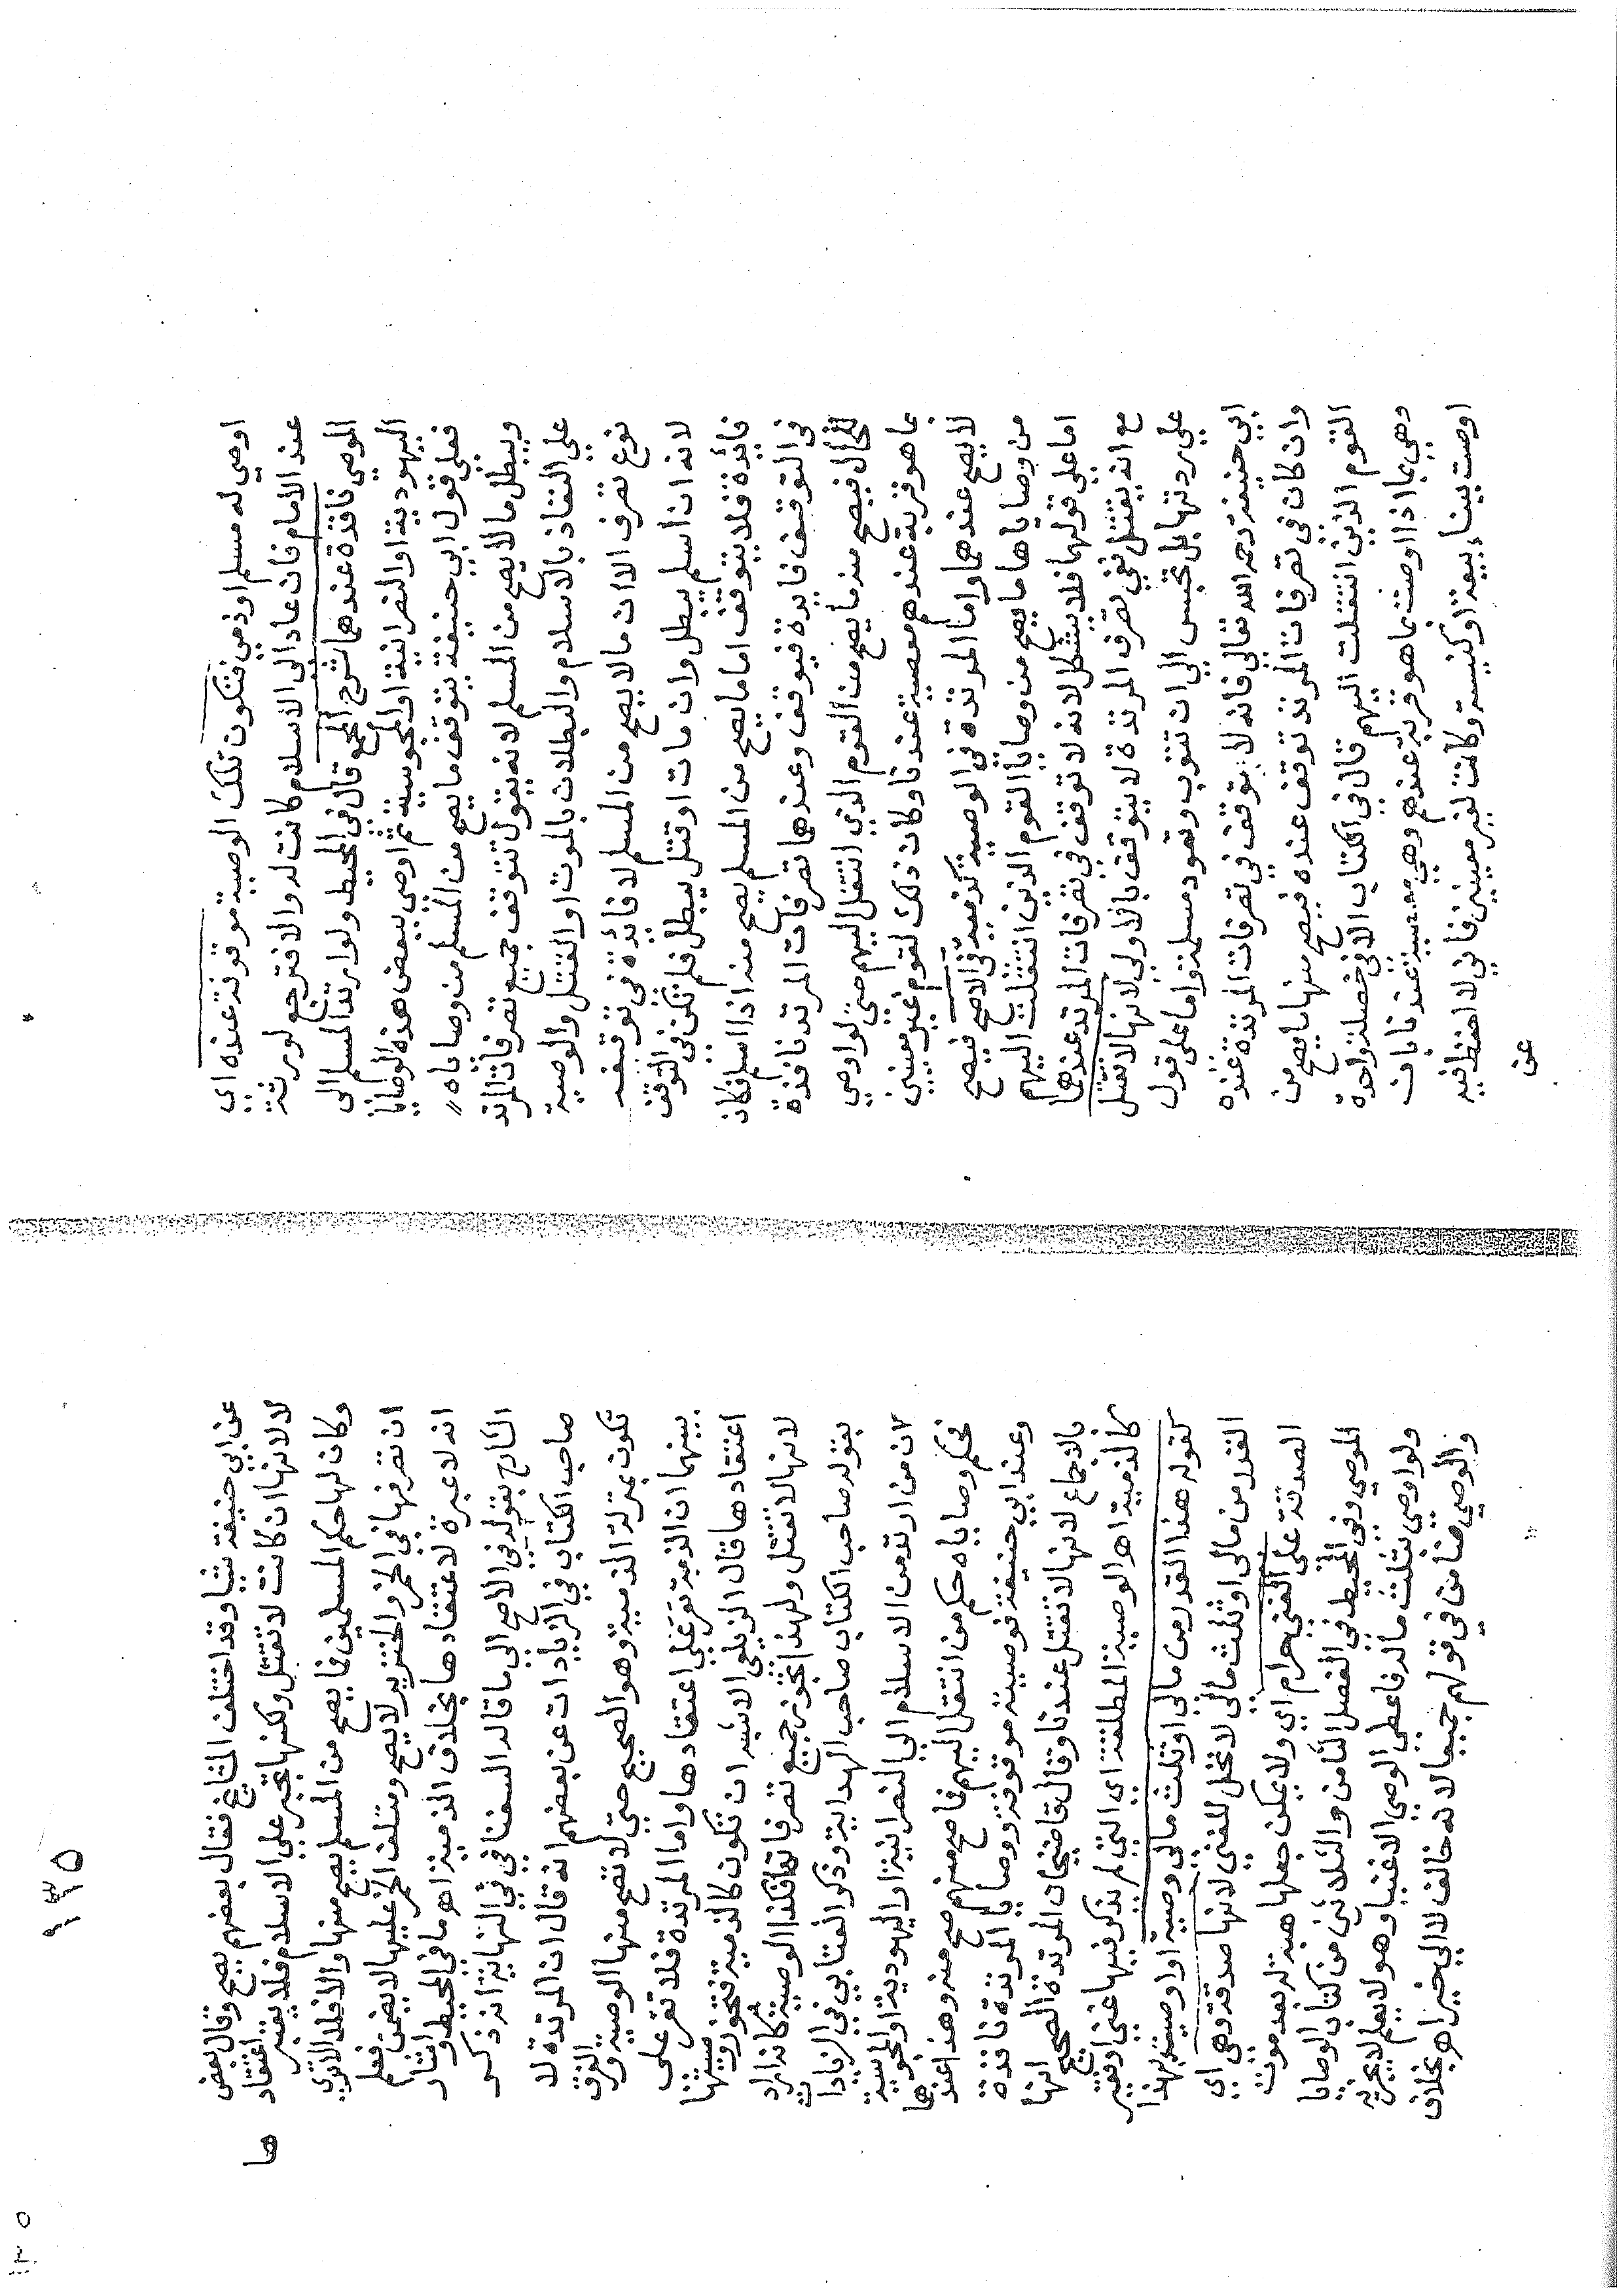 اوصي له مسلم اوذمي فتكون تلك الوصية موقوفة عنده اي
عند الامام فان عاد الى الاسلام كانت له والا فترجع لورثة
الموصي نافذة عندهما شرح المجمع قال في المحيط ولو ارتد المسلم الى
اليهودية او النصرانية او المجوسية ثم اوصى ببعض هذه الوصايا
فعلى قول ابي حنيفة يتوقف ما يصح من المسلم من وصاياه
ويبطل ما لا يصح من المسلم لانه يقول تتوقف جميع تصرفات المرتد
على النفاذ بالاسلام والبطلان بالموت او القتل والوصية
نوع تصرف الا ان ما لا يصح من المسلم لا فائدة في توقفه
لانه ان اسلم يبطل وان مات او قتل يبطل فلم تكن في التوقف
فائدة فلا يتوقف اما ما يصح من المسلم يصح منه اذا اسلم فكان
في التوقف فايدة فيوقف وعندهما تصرفات المرتد نافذة
للحال فيصح منه ما يصح من القوم الذي انتقل اليهم حتى لو اوصي
بما هو قربة عندهم معصية عندنا وكان ذلك لقوم غير معينين
لا يصح عندهما واما المرتدة في الوصية كذمية في الاصح فيصح
من وصاياها ما يصح من وصايا القوم الذين انتقلت اليهم
اما على قولهما فلا يشكل لانه لا توقف في تصرفات المرتد عندهما
مع انه يقتل ففي تصرف المرتدة لا يتوقف بالاولى لانها لا تقتل
على ردتها بل تحبس الى ان تتوب وتعود مسلمة واما على قول
ابي حنيفة رحمه الله تعالى فانه لا يتوقف في تصرفات المرتدة عنده
وان كان في تصرفات المرتد توقف عنده فيصح منها ما يصح من
القوم الذين انتقلت اليهم قال في الكتاب الا في خصلة واحدة
وهي ما اذا اوصت بما هو قربة عندهم وهي معصية عندنا بان
اوصت ببناء بيعة او كنيسة وكانت لغير معينين فاني لا احفظ فيه
عن
١٣٥
عن ابي حنيفة شيا وقد اختلف المشايخ فقال بعضهم يصح وقال بعض
لا لانها ان كانت لا تقتل ولكنها تجبر على الاسلام فلا يعتبر اعتقاد
ها
وكان لها حكم المسلمين فما يصح من المسلم يصح منها والا فلا الا ترى
ان تصرفها في الخمر والخنزير لا يصح ومتلف الخمر عليها لا يضمن فعلم
انه لا عبرة لاعتقادها بخلاف الذمية اهـ ما في المحيط واشار
الشارح بقوله في الاصح الى ما قاله السغناقي في النهاية انه ذكر
صاحب الكتاب في الزيادات عن بعضهم انه قال ان المرتدة لا
تكون بمنزلة الذمية وهو الصحيح حتى لا تصح منها الوصية وفرق
بينهما ان الذمية تقر على اعتقادها واما المرتدة فلا تقر على
اعتقادها قال الزيلعي الاشبه ان تكون كالذمية فتجوز وصيتها
لانها لا تقتل ولهذا تجوز جميع تصرفاتها فكذا الوصية كانه اراد
بقوله صاحب الكتاب صاحب الهداية وذكر العتابي في الزيادات
ان من ارتد من الاسلام الى النصرانية او اليهودية او المجوسية
فحكم وصاياه حكم من انتقل اليهم فما صح منهم صح منه وهذا عندهما
وعند ابي حنيفة فوصيته موقوفة ووصايا المرتدة نافذة
بالاجماع لانها لا تقتل عندنا وقال قاضيخان المرتدة الصحيح انها
كالذمية اهـ الوصية المطلقة اي التي لم يذكر فيها غني او فقير
كقوله هذا القدر من مالي او ثلث مالي وصية او اوصيت بهذا
القدر من مالي او ثلث مالي لا تحل للغني لانها صدقة وهي اي
الصدقة على الغني حرام اي ولا يمكن جعلها هبة له بعد موت
الموصي وفي المحيط في الفصل الثامن والثلاثين من كتاب الوصايا
ولو اوصي بثلث ماله فاعطى الوصي الاغنيا وهو لا يعلم لا يجزيه
والوصي ضامن في قولهم جميعا لانه خالف لا الى خير اهـ بخلاف